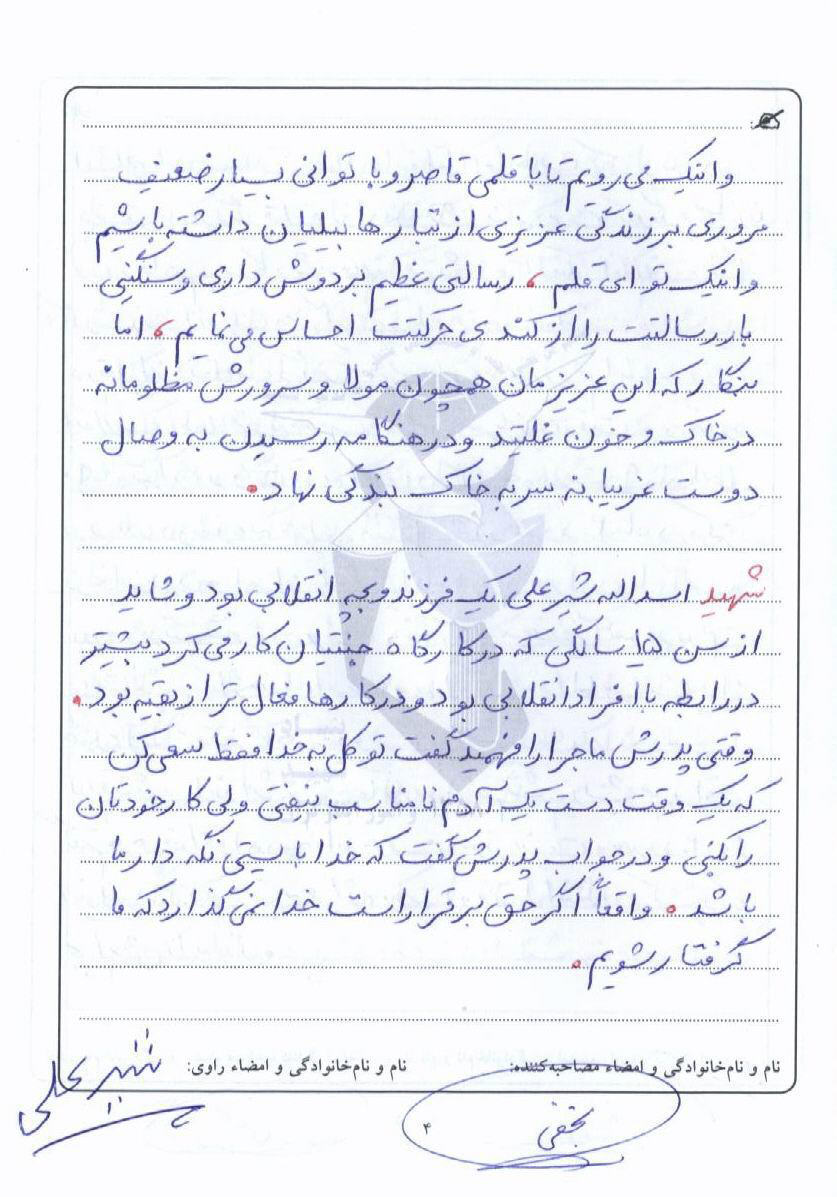 و اینک می رویم تا با قلمی قاصر و با توانی بسیار ضعیف
مروری بر زندگی عزیزی از تبار هابیلیان داشته باشیم
و اینک تو ای قلم ، رسالتی عظیم بر دوش داری و سنگینی
بار رسالتت را از کندی حرکتت احساس می نمایم ، اما
بنگار که این عزیزمان همچون مولا و سرورش مظلومانه
در خاک و خون غلتید و در هنگامه رسیدن به وصال
دوست غریبانه سر به خاک بندگی نهاد .
شهید اسداله شیرعلی یک فرزند و بچه انقلابی بود و شاید
از سن ۱۵ سالگی که در کارگاه جنتیان کار می کرد بیشتر
در رابطه با افراد انقلابی بود و در کارها فعال تر از بقیه بود .
وقتی پدرش ماجرا را فهمید گفت توکل به خدا فقط سعی کن
که یک وقت دست یک آدم نامناسب نیفتی ولی کار خودتان
را بکنی و در جواب پدرش گفت که خدا بایستی نگه دار ما
باشد . واقعاً اگر حق برقرار است خدا نمی گذارد که ما
گرفتار شویم .
نام و نام‌خانوادگی و امضاء مصاحبه‌کننده: نام و نام‌خانوادگی و امضاء راوی:
نجفی شیرعلی
۴